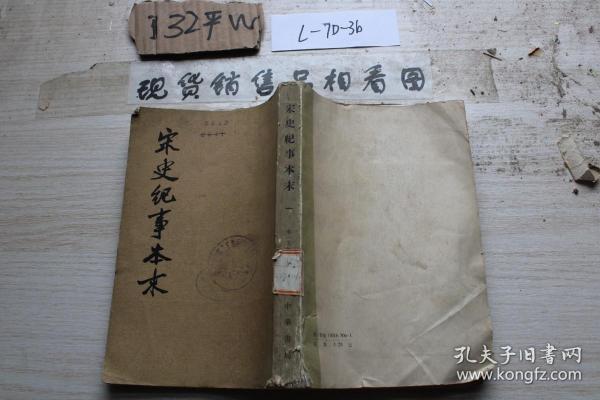 132平W
L-7D-36
现货销售品相看图
宋史纪事本末
宋史紀事本末
一
中華書局
孔夫子旧书网
www.kongfz.com